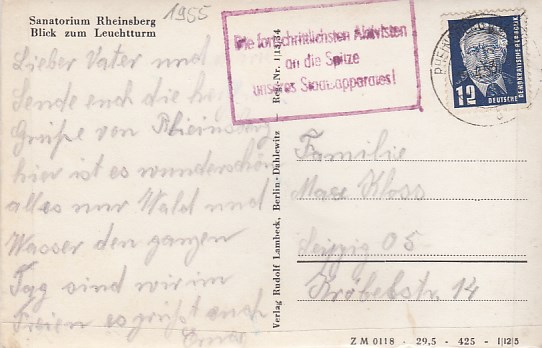 Sanatorium Rheinsberg
Blick zum Leuchtturm
1955
Die fortschrittlichsten Aktivisten
an die Spitze
unseres Staatsapparates!
12
DEUTSCHE
DEMOKRATISCHE REPUBLIK
Lieber Vater und
Sende euch die
Grüße von Rheinsberg
hier ist es wunderschön
alles nur Wald und
Wasser den ganzen
Tag sind wir im
Freien es grüßt euch
Verlag Rudolf Lambeck, Berlin-Dahlewitz — Reg.-Nr.
Familie
Max Kloss
Leipzig O5
Kröbelstr. 14
Z M 0118 - 29,5 - 425 - 1|12|5